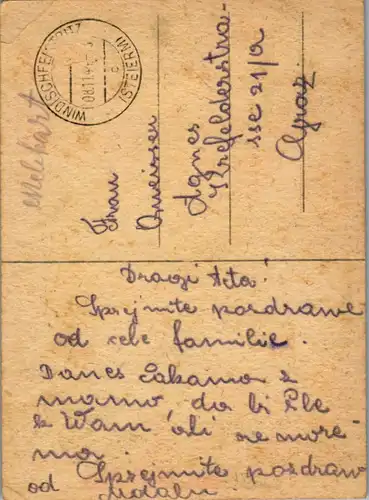 WINDISCHFEISTRITZ (STEIERM)
Melchart
Frau
Ameisser
Agnes
Krefelderstra-
sse 21/a
Graz
Dragi Ata!
Sprejmite pozdrawe
od cele familie.
Danes čakamo z
mamo da bi šle
k Wam ali ne more-
mo.
Sprejmite pozdraw
od